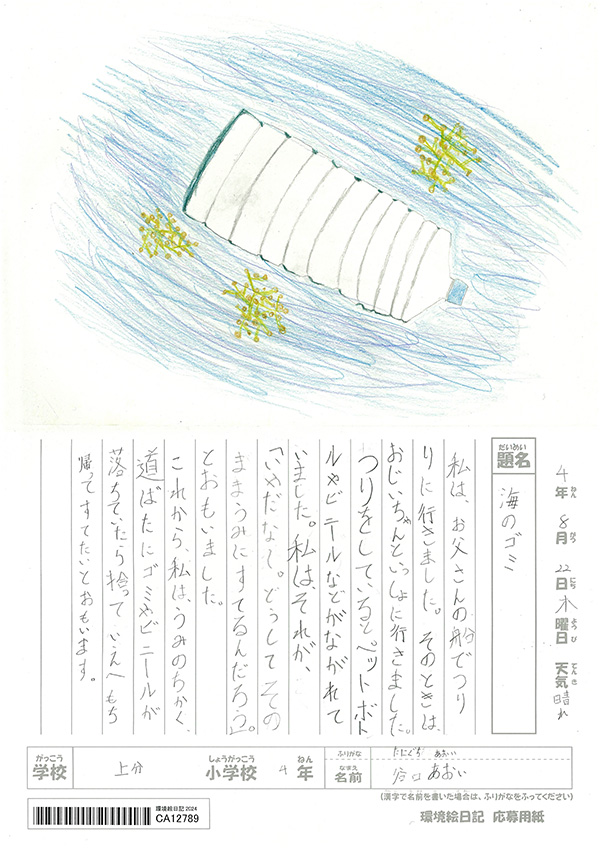 4年 8月 22日 木曜日 天気 晴れ
ねん がつ にち ようび てんき
だいめい
題名
海のゴミ
私は、お父さんの船でつり
りに行きました。そのときは、
おじいちゃんといっしょに行きました。
つりをしているとペットボト
ルやビニールなどがながれて
いました。私は、それが、
「いやだな〜。どうしてその
ままうみにすてるんだろう」。
とおもいました。
これから、私は、うみのちかく、
道ばたにゴミやビニールが
落ちていたら捨って いえへもち
帰ってすてたいとおもいます。
がっこう
学校
上分
しょうがっこう
小学校
4
ねん
年
ふりがな
たにぐち あおい
なまえ
名前
谷口 あおい
(漢字で名前を書いた場合は、ふりがなをふってください)
環境絵日記2024
CA12789
環境絵日記 応募用紙